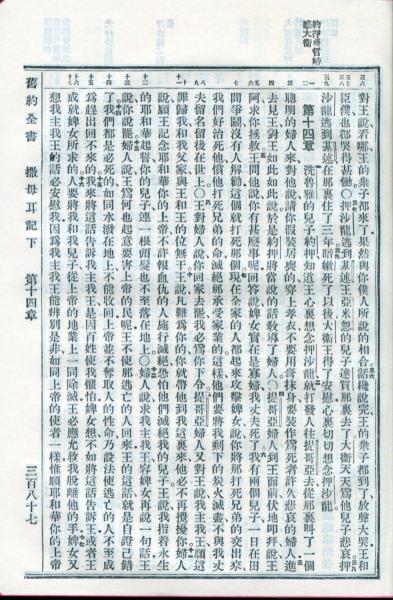 對王說看哪王的衆子都來了果然照你僕人所說的相合話纔說完王的衆子都到了放聲大哭王和
臣僕也都哭得甚慟○押沙龍逃到基述王亞米忽的兒子達買那裏去了大衛天天爲他兒子悲哀押
沙龍逃到基述在那裏住了三年暗嫩死了以後大衛王得了安慰心裏切切想念押沙龍
第十四章 洗魯雅的兒子約押知道王心裏想念押沙龍就打發人往提哥亞去從那裏叫了一個
聰明的婦人來對他說請你假裝居喪的穿上孝衣不要用膏抹身要裝作爲死者許久悲哀的婦人進
去見王對王如此如此說於是約押將當說的話敎導了婦人○提哥亞婦人到王面前伏地叩拜說王
阿求你拯救王問他說你有甚麼事呢回答說婢女實在是寡婦我丈夫死了我有兩個兒子一日在田
間爭鬭沒有人解勸這個就打死那個現在全家的人都起來攻擊婢女說你將那打死兄弟的交出來
我們好治死他償他打死兄弟的命滅絕那承受家業的這樣他們要將我剩下的炭火滅盡不與我丈
夫留名留後在世上○王對婦人說你回家去罷我必爲你下令提哥亞婦人又對王說我主我王願這
罪歸我和我父家與王和王的位無干王說凡難爲你的你就帶他到我這裏來他必不再攪擾你婦人
說願王記念耶和華你的上帝不許報血仇的人施行滅絕恐怕他們滅絕我的兒子王說我指着永生
的耶和華起誓你的兒子連一根頭髮也不至落在地上○婦人說求我主我王容婢女再說一句話王
說你說罷婦人說王爲何也起意要害上帝的民呢王不使那逃亡的人回來王的這話就是自證己錯
了我們都是必死的如同水潑在地上不能收回上帝並不奪取人的性命乃設法使逃亡的人不至成
爲趕出回不來的我來將這話告訴我主我王是因百姓使我懼怕婢女想不如將這話告訴王或者王
成就婢女所求的人要將我和我兒子從上帝的地業上一同除滅王必應允救我脫離他的手婢女又
想我主我王的話必安慰我因爲我主我王能辨別是非如同上帝的使者一樣惟願耶和華你的上帝
舊約全書 撒母耳記下 第十四章 三百八十七